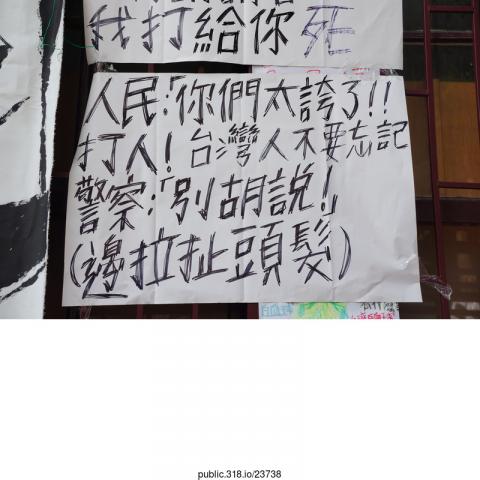 我打給你死
人民:「你們太誇了!!
打人! 台灣人不要忘記
警察:「別胡說!」
(邊拉扯頭髮)
public.318.io/23738